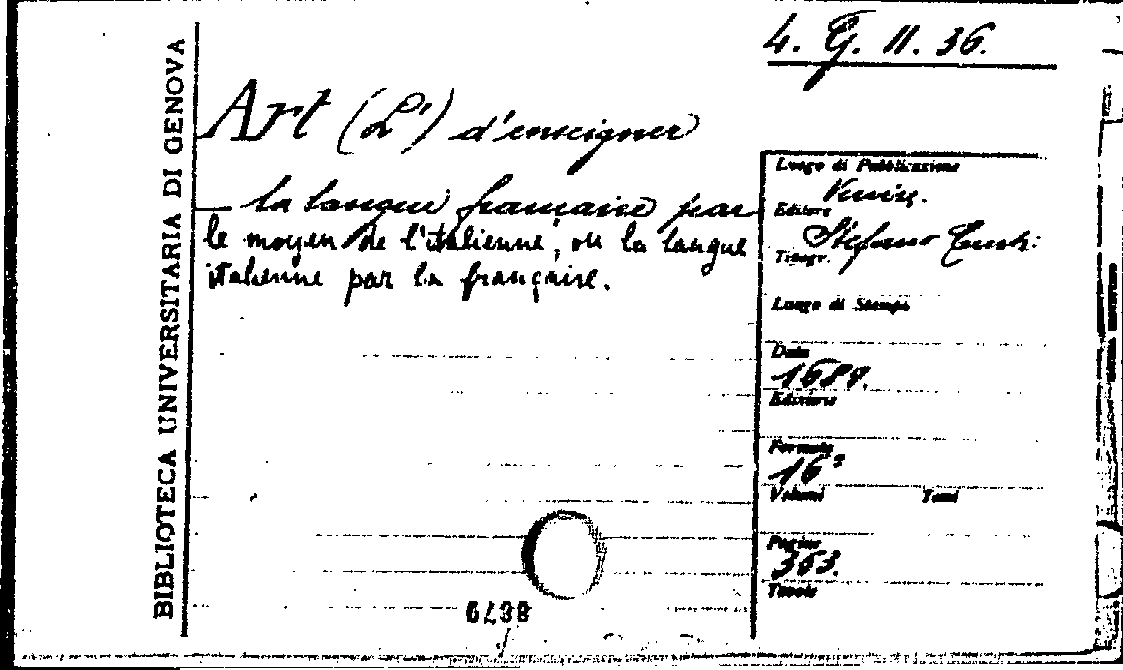 4. G. II. 36.
BIBLIOTECA UNIVERSITARIA DI GENOVA
Art (L') d'enseigner
la langue française par
le moyen de l'italienne, ou la langue
italienne par la française.
Luogo di Pubblicazione
Editore
Stefano
Tipogr.
Luogo di Stampa
Data
Edizione
Formato
16º
Volumi Tomi
Pagine
363.
Tavole